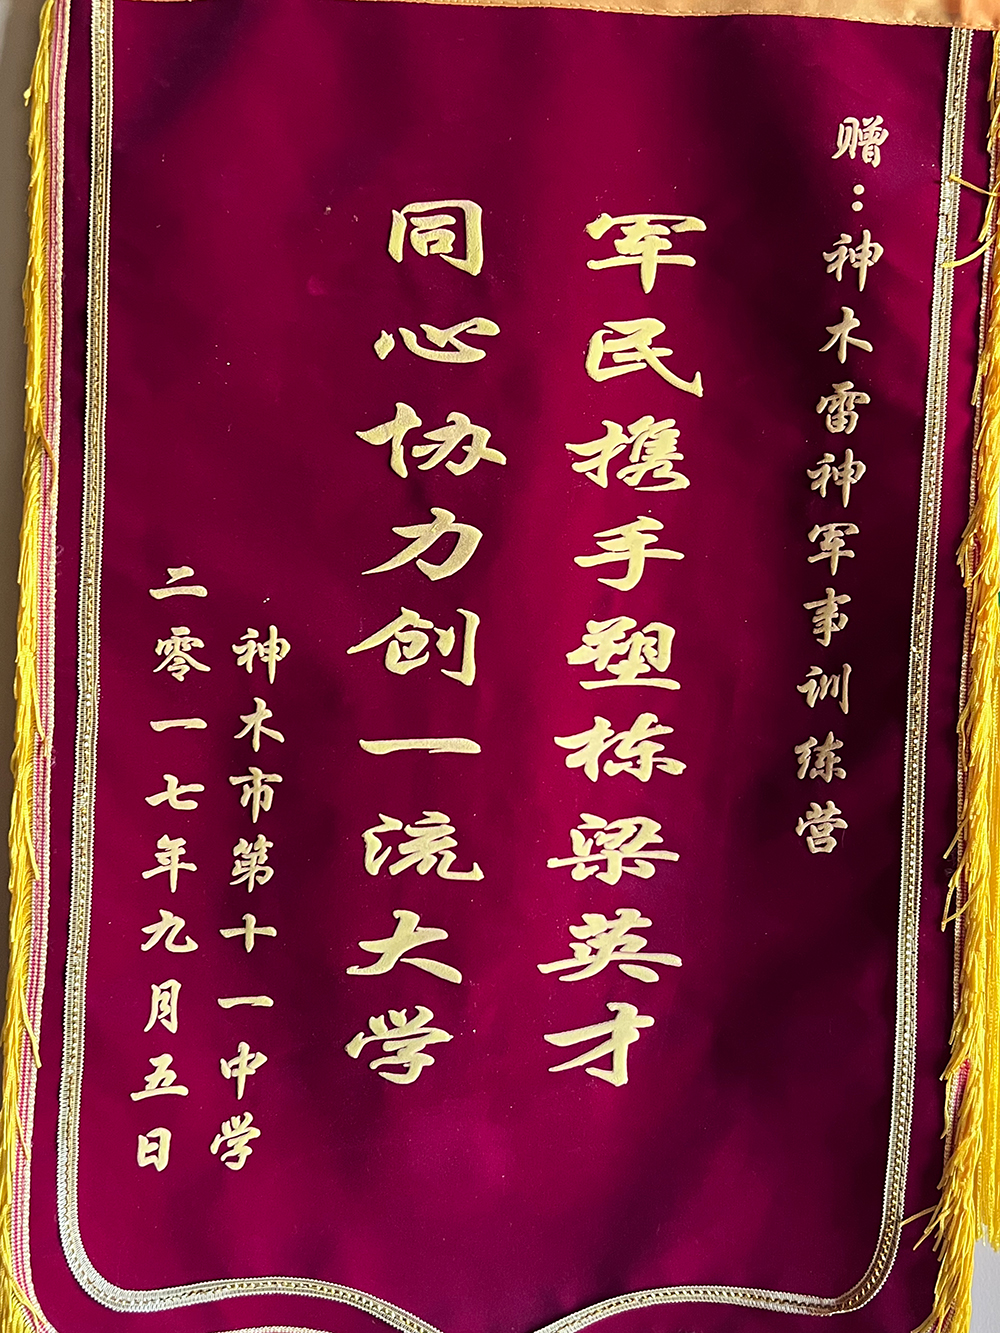 赠：神木雷神军事训练营
军民携手塑栋梁英才
同心协力创一流大学
神木市第十一中学
二零一七年九月五日